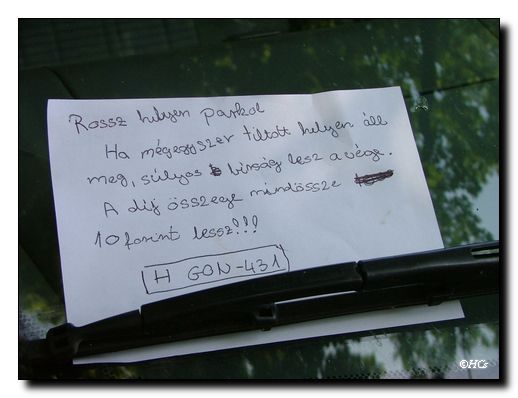 Rossz helyen parkol
Ha mégegyszer tiltott helyen áll
meg, súlyos bírság lesz a vége.
A díj összege mindössze
10 forint lessz!!!
H GON-431
©HGs